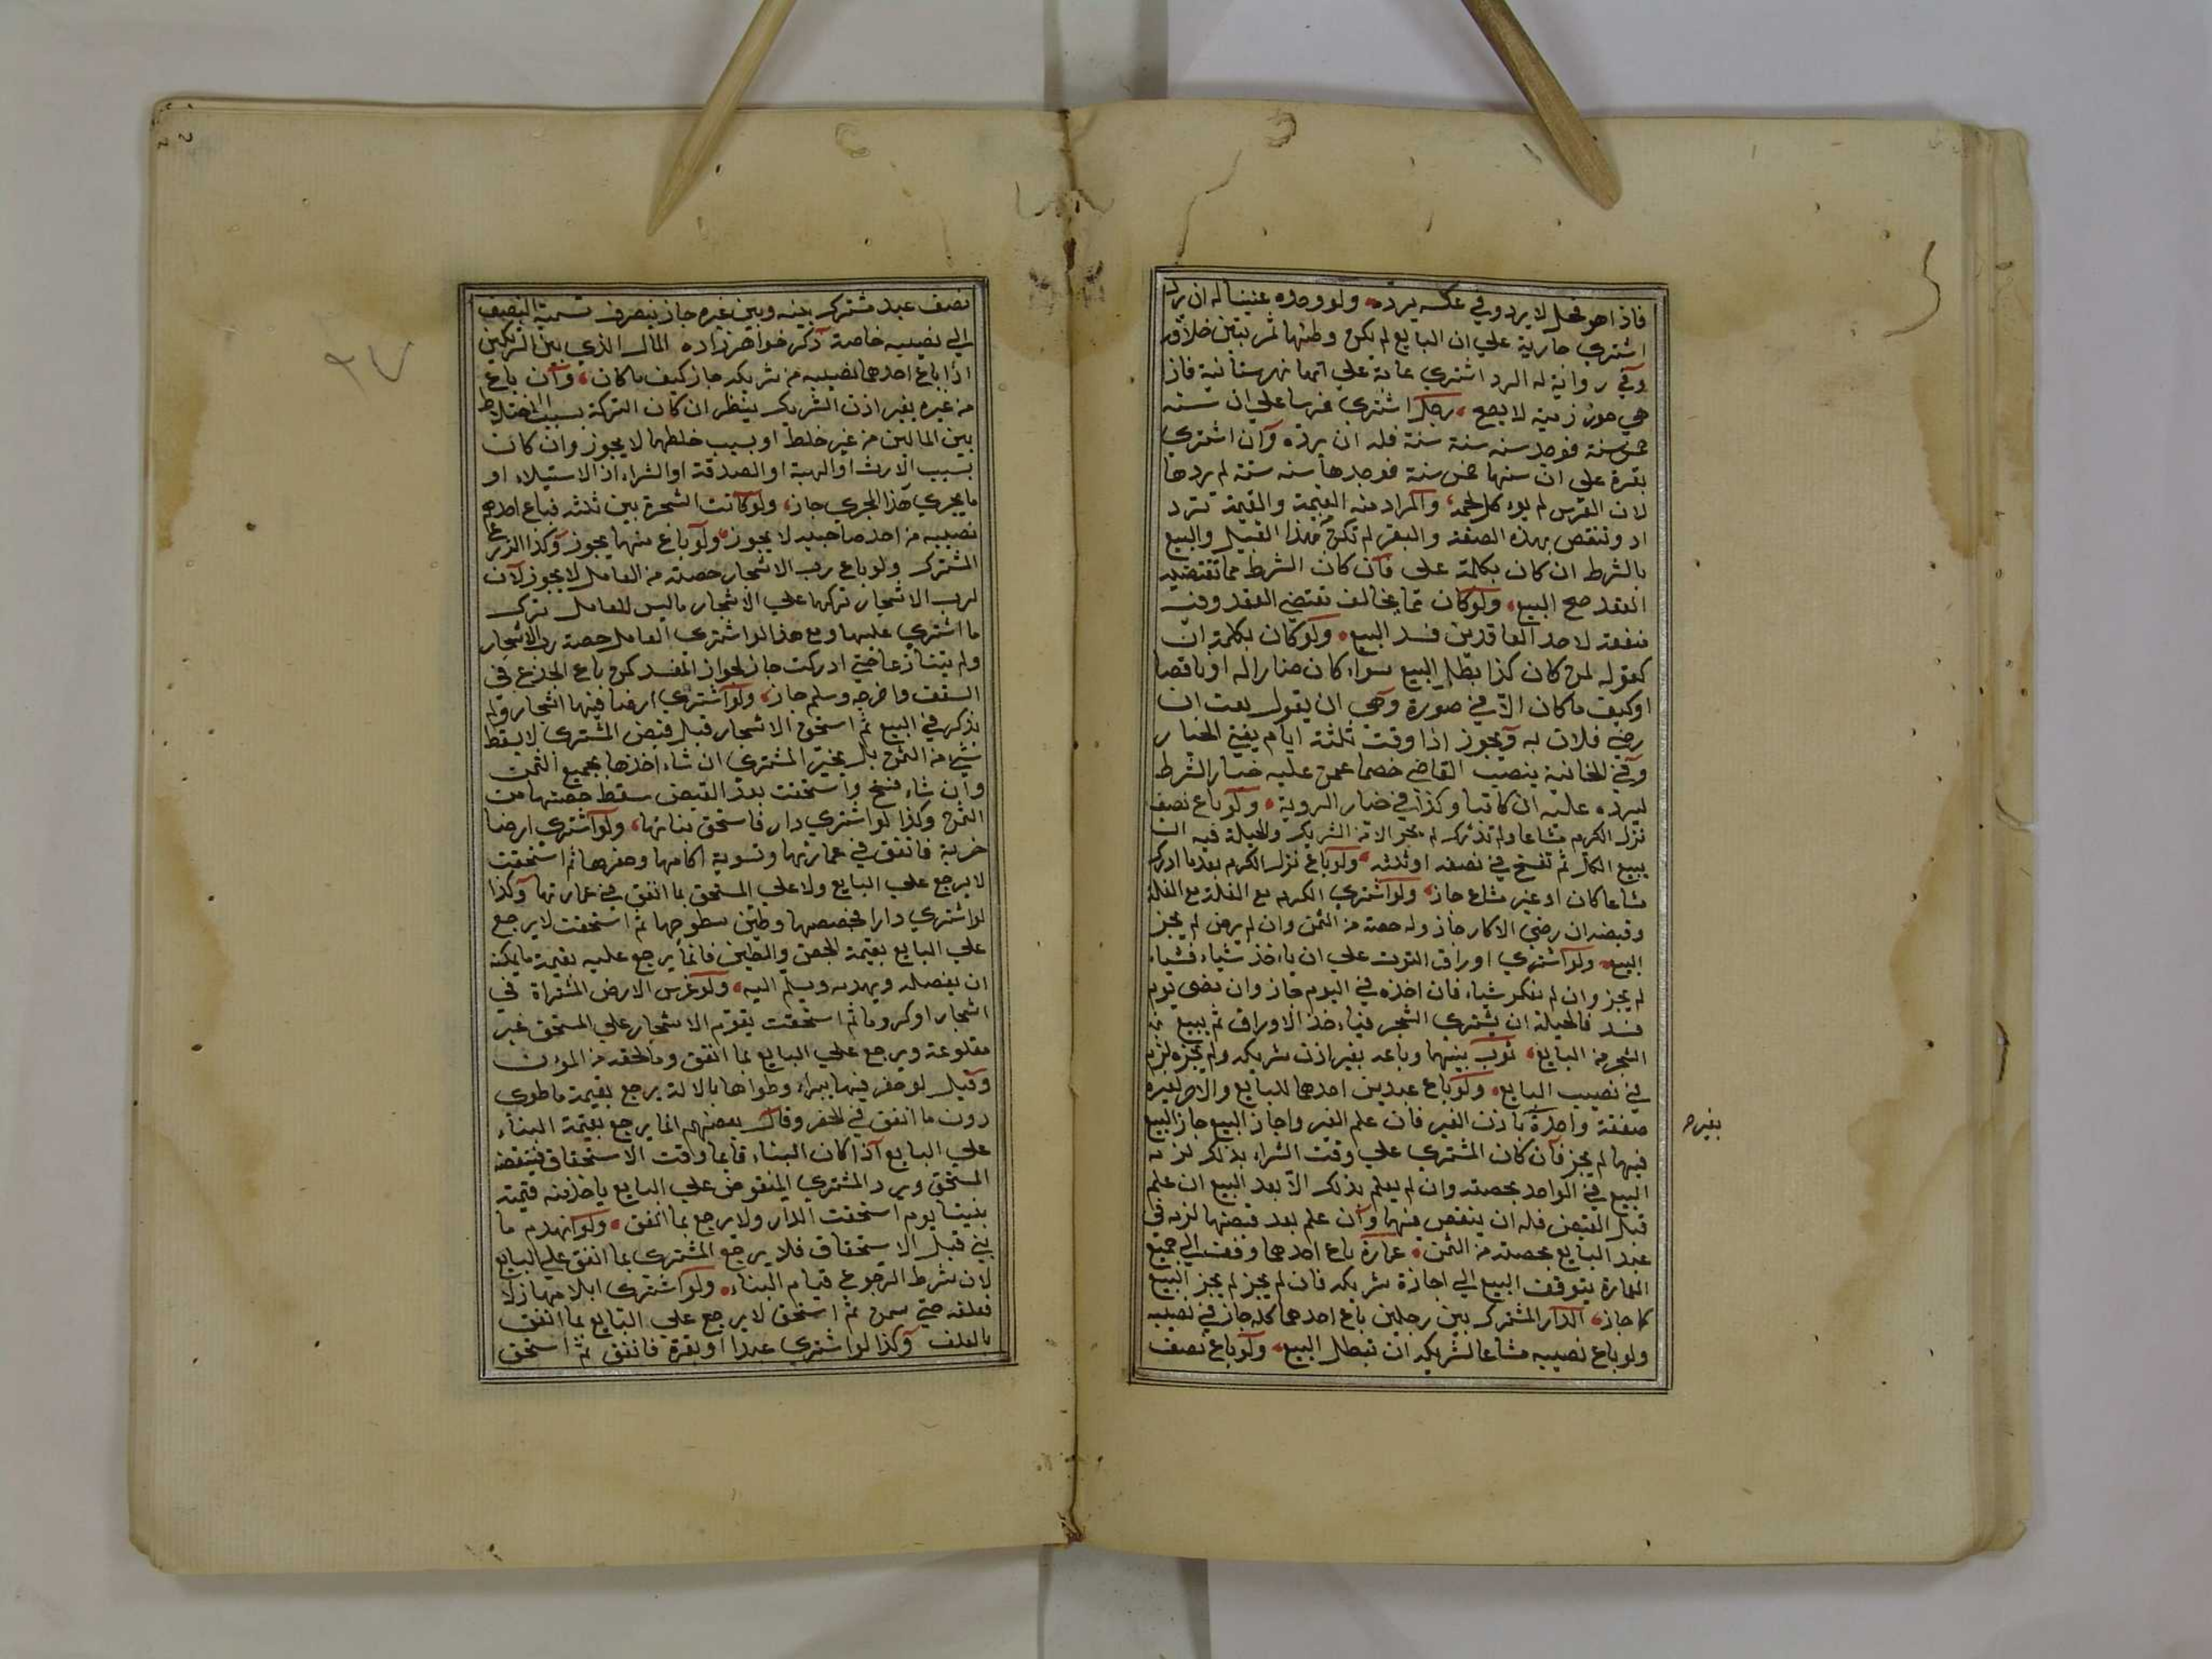 فاذا هو فحل لا يرد وفي عكسه يرده ولو وجده عنينا له ان يرد
اشتري جارية علي ان البايع لم يكن وطئها ثم تبين خلافه
وفي رواية له الرد اشتري علي انها فاذا
هي لا يصح رجل اشتري فرسا علي ان سنه
خمس سنة فوجد سنه ستة سنة فله ان يرده وان اشتري
بقرة علي ان سنها خمس سنة فوجدها سنه ستة لم يردها
لان الفرس لم يؤكل لحمه والمراد منه القيمة والقيمة تزد
اد وتنقص بهذه الصفة والبقر لم تكن بهذا القبيل والبيع
بالشرط ان كان بكلمة علي فان كان الشرط مما تقتضيه
العقد صح البيع ولو كان مما يخالف تقتضي العقد وفيه
منفعة لاحد العاقدين فسد البيع ولو كان بكلمة ان
كقوله لمن كان كذا بطل البيع سواء كان ضارا له او ناقصا
او كيف ما كان الا في صورة وهي ان يقول بعت ان
رضي فلان به ويجوز اذا وقت ثلثة ايام يعني الخيار
وفي الخانية ينصب القاضي خصما عمن عليه خيار الشرط
ليرده عليه ان كان وكذا في خيار الروية ولو باع نصف
نزل الكرم مشاعا ولم تدرك لم يجز الا من الشريك والحيلة فيه ان
يبيع الكل ثم تفسخ في نصفه او ثلثه ولو باع نزل الكرم بعد ما ادرك
مشاعا كان او غير مشاع جاز ولو اشتري الكرم مع الغلة مع الغلة
وقبضه ان رضي الاكار جاز وله حصته من الثمن وان لم يرض لم يجز
البيع ولو اشتري اوراق التوت علي ان ياخذ شياء فشياء
لم يجز وان لم يذكر شياء فان اخذه في اليوم جاز وان مضي يوم
فسد فالحيلة ان يشتري الشجر فياخذ الاوراق ثم يبيع
الشجر من البايع ثوب بينهما وباعه بغير اذن شريكه ولم يجزه لزم
في نصيب البايع ولو باع عبدين احدهما للبايع والاخر لغيره
بغيره
صفقة واحدة باذن الغير فان علم الغير واجاز البيع جاز البيع
فيهما لم يجز فان كان المشتري علي وقت الشراء بذلك لزمه
البيع في الواحد بحصته وان لم يعلم بذلك الا بعد البيع ان علم
قبل القبض فله ان ينقص فيهما وان علم بعد قبضهما لزمه في
عبد البايع بحصته من الثمن عمارة باع احدهما وقفت الي جميع
العمارة يتوقف البيع الي اجازة شريكه فان لم يجز لم يجز البيع
كما جاز الدار المشترك بين رجلين باع احدهما كله جاز في نصيبه
ولو باع نصيبه مشاعا لشريكه ان تبطل البيع ولو باع نصف
٩٧
نصف عبد مشترك بينه وبين غيره جاز فينصرف تسمية النصف
الي نصيبه خاصة ذكر خواهر زاده المال الذي بين الشريكين
اذا باع احدهما نصيبه من شريكه جاز كيف ما كان وان باع
من غيره بغير اذن الشريك ينظر ان كان التركة بسبب اختلاط
بين المالين من غير خلط او بسبب خلطهما لا يجوز وان كان
بسبب الارث او الهبة او الصدقة او الشراء او الاستيلاء او
ما يجري هذا المجري جاز ولو كانت الشجرة بين ثلثة فباع احدهم
نصيبه من احد صاحبيه لا يجوز ولو باع منهما يجوز وكذا الزرع
المشترك ولو باع رب الاشجار حصته من العامل لا يجوز لان
لرب الاشجار تركها علي الاشجار وليس للعامل ترك
ما اشتري عليها ومع هذا لو اشتري العامل حصة رب الاشجار
ولم يتنازعا حتي ادركت جاز لجواز المفسد كمن باع الجذع في
السقف واخرجه وسلم جاز ولو اشتري ارضا فيها اشجار ولم
يذكر في البيع ثم استحق الاشجار قبل قبض المشتري لا يسقط
شيء من الثمن بل يخير المشتري ان شاء اخذها بجميع الثمن
وان شاء فسخ واستحقت بعد القبض سقط حصتها من
الثمن وكذا لو اشتري دار فاستحق بنائها ولو اشتري ارضا
خربة فانفق في عمارتها وتسوية اكامها وحفرها ثم استحقت
لا يرجع علي البايع ولا علي المستحق بما انفق في عمارتها وكذا
لو اشتري دارا فجصصها وطين سطوحها ثم استحقت لا يرجع
علي البايع بقيمة الجص والطين فانما يرجع عليه بقيمة ما يمكنه
ان يفصله ويهدمه ويسلم اليه ولو غرس الارض المشتراة في
اشجار او كروما ثم استحقت يقوم الاشجار علي المستحق غير
مقلوعة ويرجع علي البايع بما انفق وبالحقه من المؤن
وقيل لو حفر فيها بيرا وطواها بالالة يرجع بقيمة ما طوي
دون ما انفق في الحفر وقال بعضهم انما يرجع بقيمة البناء
علي البايع اذا كان البناء قايما وقت الاستحقاق فينقضه
المستحق ويرد المشتري المنقوض علي البايع ياخذ منه قيمته
بنيتا يوم استحقت الدار ولا يرجع بما انفق ولو انهدم ما
بني قبل الاستحقاق فلا يرجع المشتري بما انفق علي البايع
لان شرط الرجوع قيام البناء ولو اشتري ابلا مهازلا
فعلفه حتي سمن ثم استحق لا يرجع علي البايع بما انفق
بالعلف وكذا لو اشتري عبدا او بقرة فانفق ثم استحق